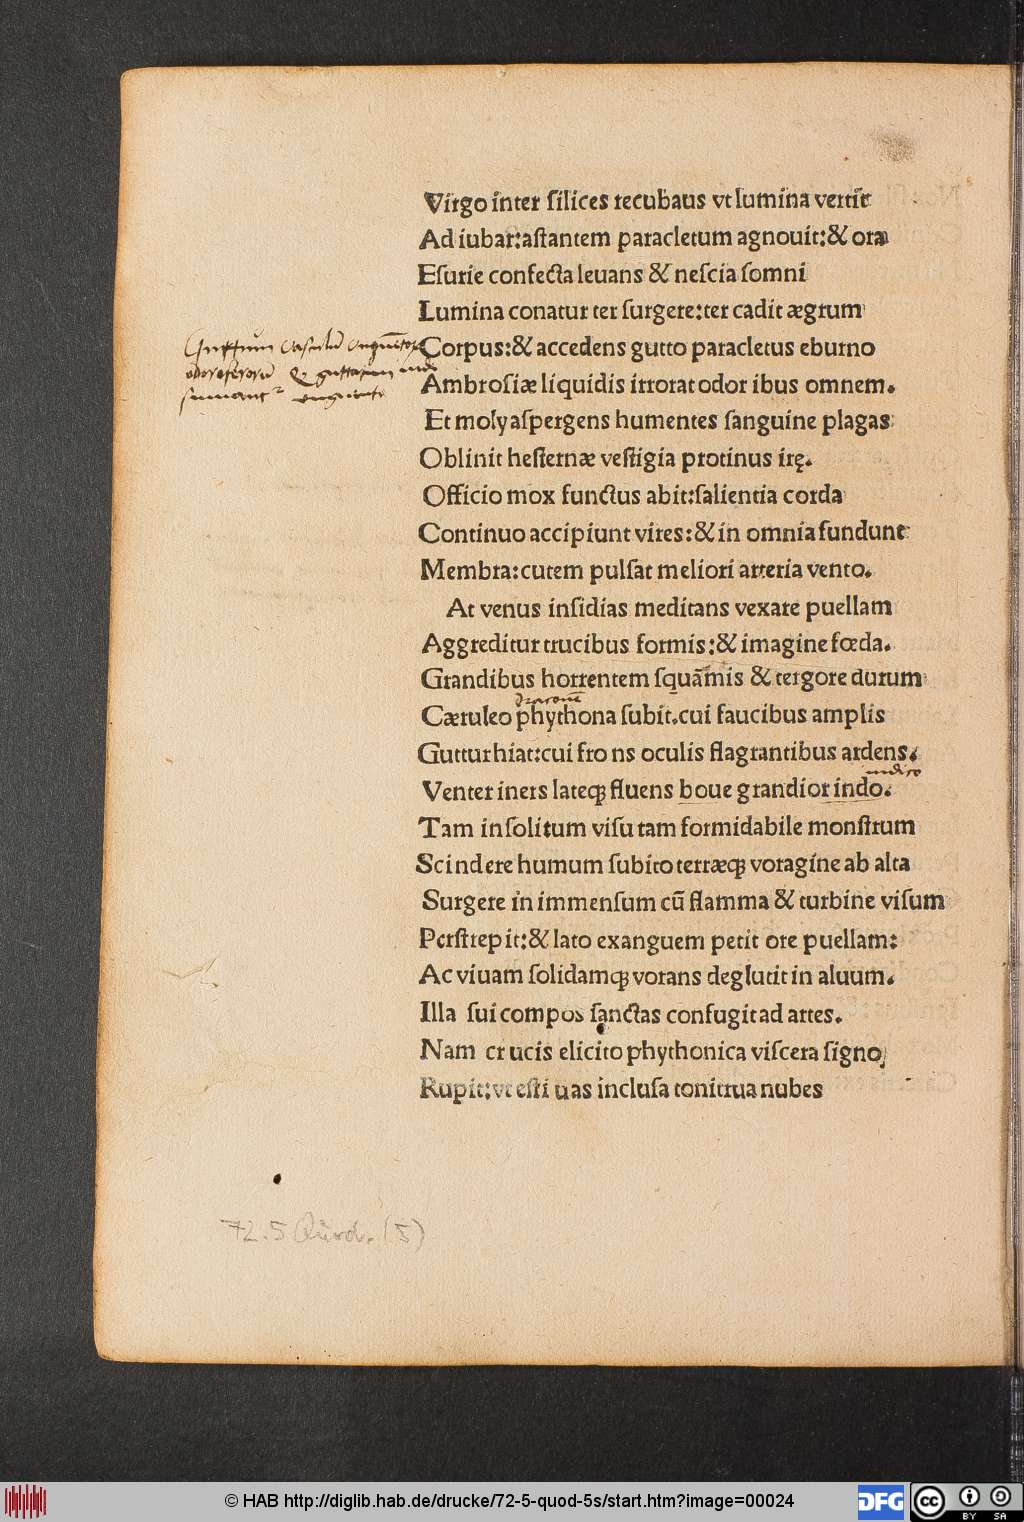 Virgo inter ſilices recubaus vt lumina vertit
Ad iubar:aſtantem paracletum agnouit:& ora
Eſurie confecta leuans & neſcia ſomni
Lumina conatur ter ſurgere:ter cadit ægrum
Corpus:& accedens gutto paracletus eburno
Ambroſiæ liquidis irrorat odor ibus omnem.
Et moly aſpergens humentes ſanguine plagas
Oblinit heſternæ veſtigia protinus irę.
Officio mox functus abit:ſalientia corda
Continuo accipiunt vires:& in omnia fundunt
Membra:cutem pulſat meliori arteria vento.
At venus inſidias meditans vexare puellam
Aggreditur trucibus formis:& imagine fœda.
Grandibus horrentem ſquāmis & tergore durum
Cæruleo phythona ſubit.cui faucibus amplis
Guttur hiat:cui fro ns oculis flagrantibus ardens.
Venter iners lateqꝫ fluens boue grandior indo.
Tam inſolitum viſu tam formidabile monſtrum
Sci ndere humum ſubito terræqꝫ voragine ab alta
Surgere in immenſum cū flamma & turbine viſum
Perſtrep it:& lato exanguem petit ore puellam:
Ac viuam ſolidamqꝫ vorans deglutit in aluum.
Illa ſui compos ſanctas confugit ad artes.
Nam cr ucis elicito phythonica viſcera ſigno
Rupit:vt eſti uas incluſa tonitrua nubes
Guttum vasculū
odoriferorū
sumant
unguenti
dracone
indico
72.5 Quod. (5)
© HAB http://diglib.hab.de/drucke/72-5-quod-5s/start.htm?image=00024
DFG
CC
BY SA